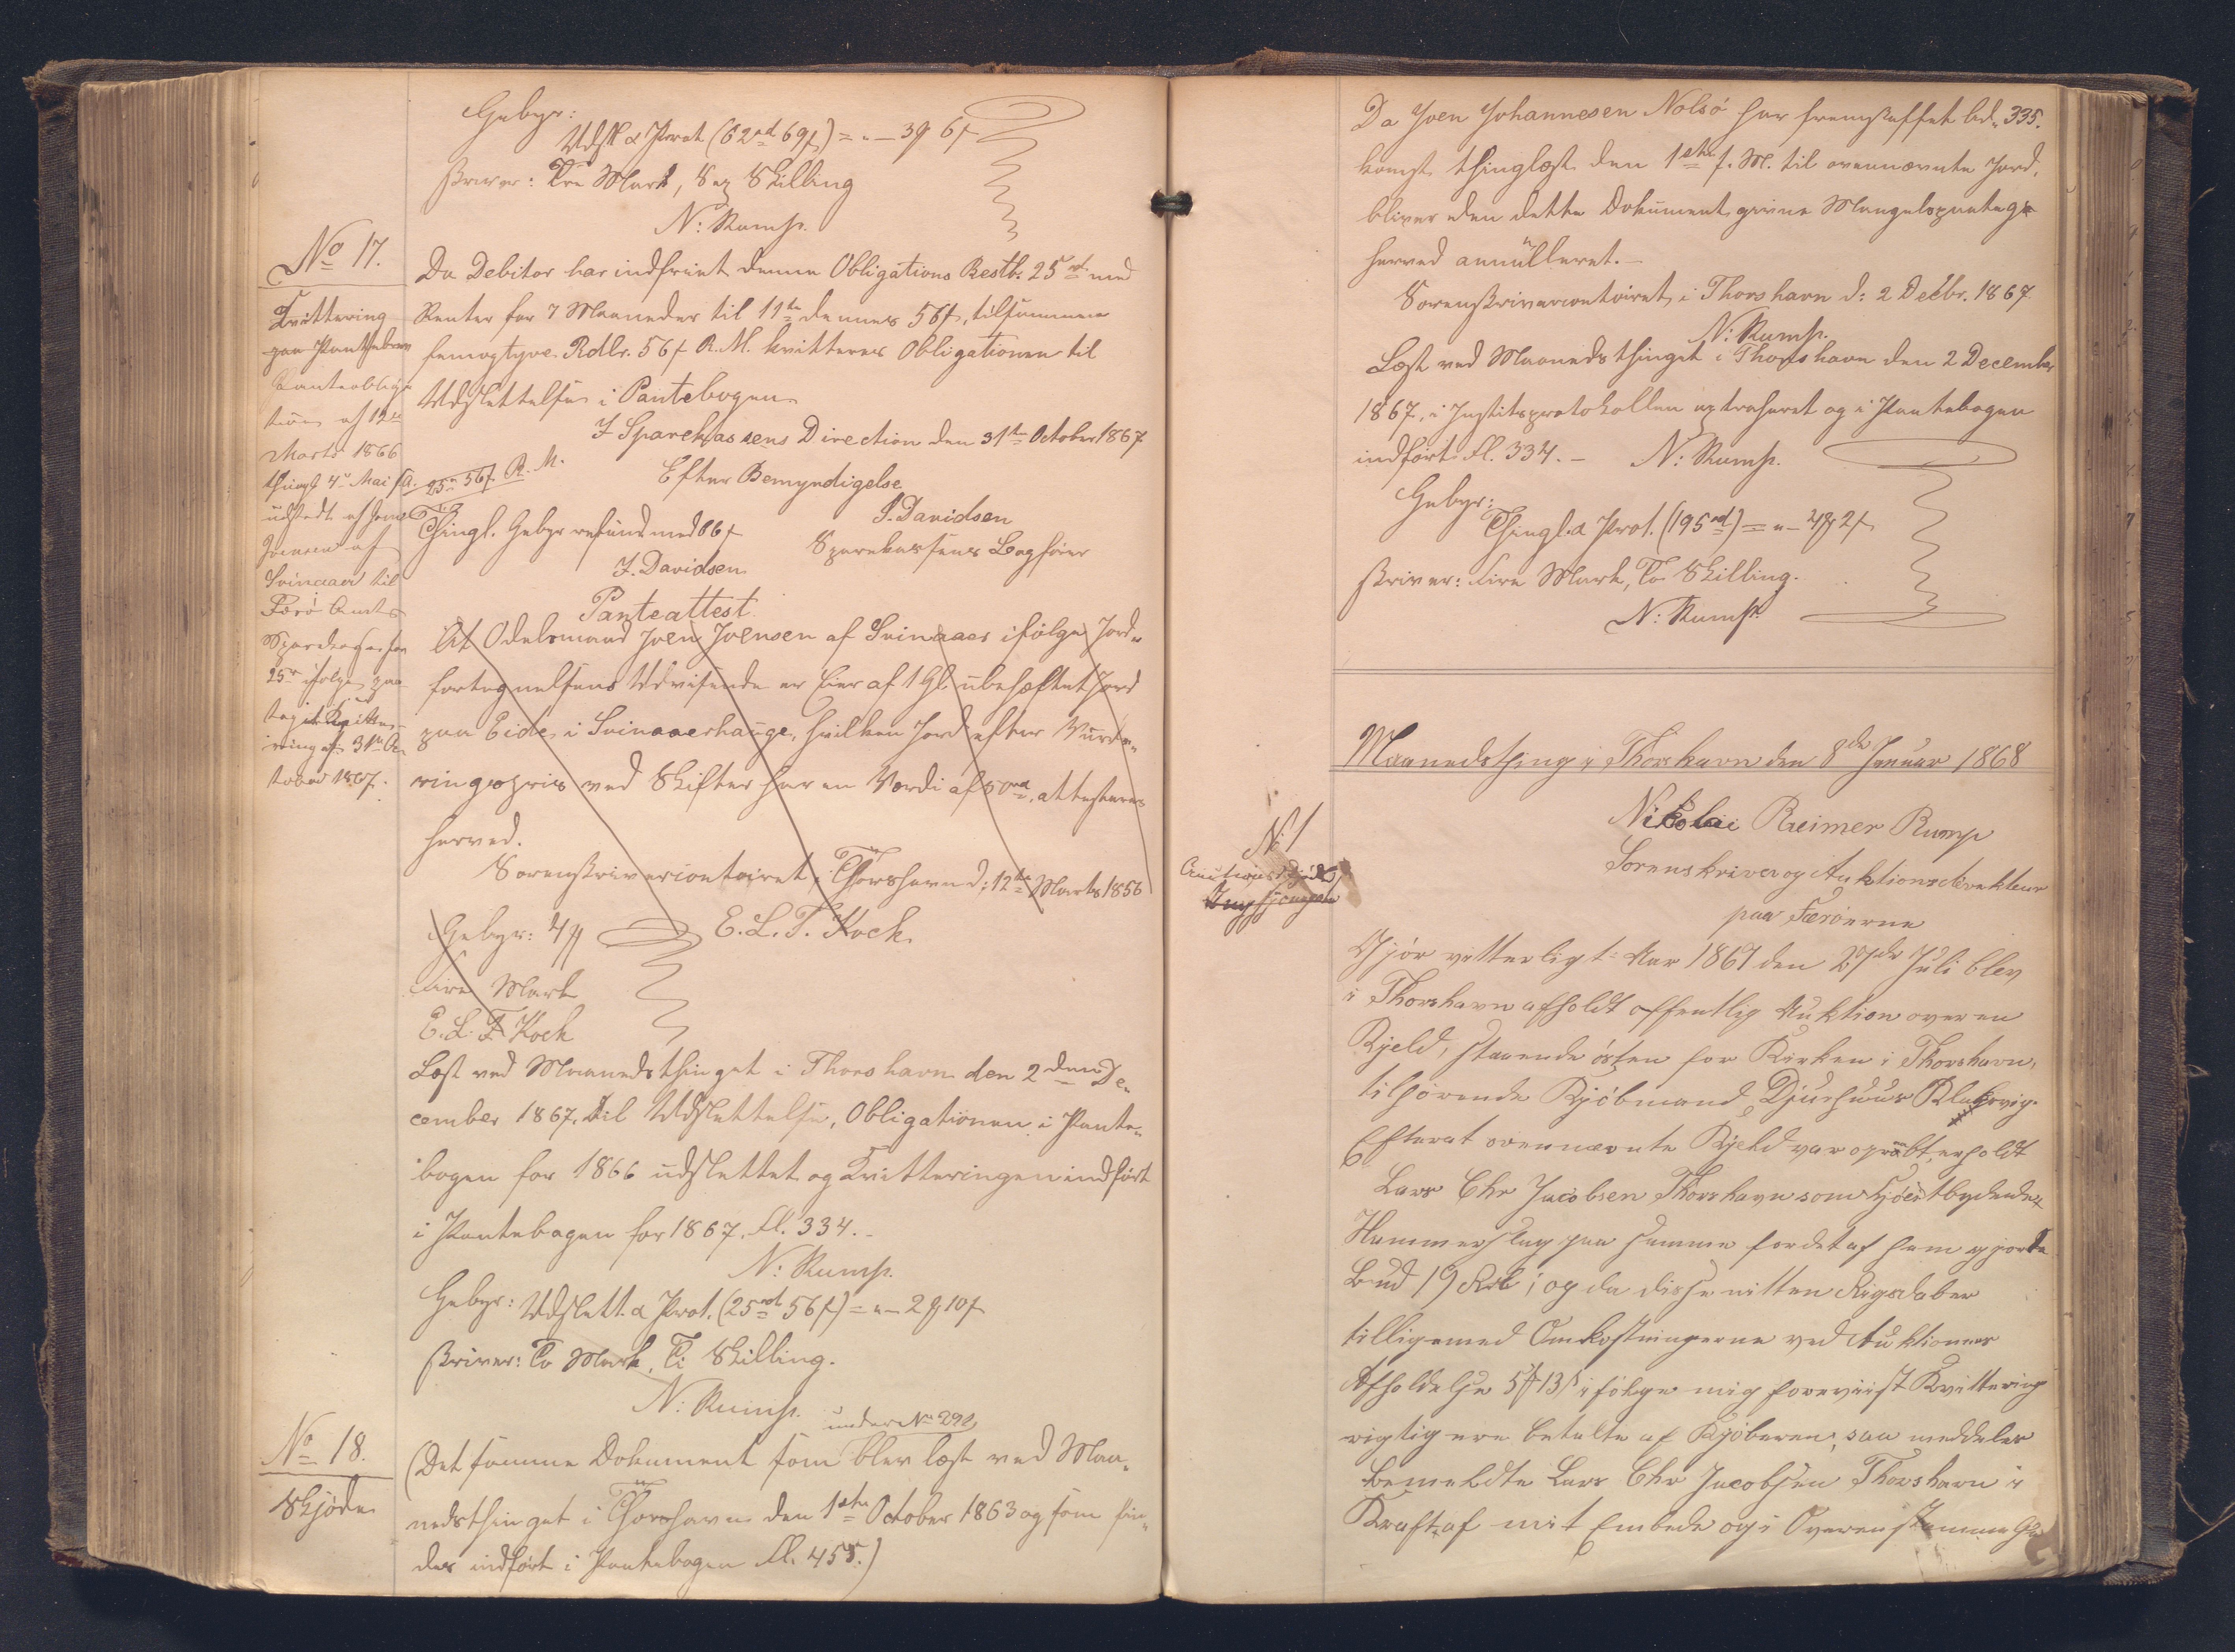 Gebyr:
Udsl & Prot (62rd 69f) = " – 3 6
skriver: Tre Mark, Sex Skilling
N: Rump.
No 17.
Kvittering
paa
Panteobliga
tion af 12te
Marts 1866
thingl 4de Mai s.A.
udstedt af Joen
Joensen af
Svinaaer til
Færø Amts
Sparekasse for
25rd ifølge paa
tegnet Kvitte
ring af 31te Oc
tober 1867.
Da Debitor har indfriet denne Obligations Restb. 25rd med
Renter for 7 Maaneder til 11te dennes 56f, tilsammen
femogtyve Rdlr. 56f R.M. kvitteres Obligationen til
Udslettelse i Pantebogen
I Sparekassens Direction den 31te October 1867
25rd 56f R. M.
Efter Bemyndigelse
Thingl. Gebyr refund med 66f
J. Davidsen
J. Davidsen
Sparekassens Bogfører
Panteattest
At Odelsmand Joen Joensen af Svinaaer ifølge Jord„
fortegnelsens Udvisende er Eier af 1 Gl. ubehæftet Jord
paa Eide i Svinaaerhauge, hvilken Jord efter Vurde„
ringspris ved Skifter har en Værdi af 50rd, attesteres
herved.
Sorenskrivercontoiret i Thorshavn d: 12te Marts 1856
Gebyr: 4
E. L. T. Koch.
Fire Mark
E. L. T. Koch
Læst ved Maanedsthinget i Thorshavn den 2den De„
cember 1867. Til Udslettelse, Obligationen i Pante„
bogen for 1866 udslettet og Kvitteringen indført
i Pantebogen for 1867. Fl. 334.–
N: Rump.
Gebyr: Udslett & Prot. (25rd 56f) = " – 2 10f
skriver: To Mark, Ti Skilling.
N: Rump.
No 18.
Skjøde
under No 292
(Det samme Dokument som blev læst ved Maa„
nedsthinget i Thorshavn den 1ste October 1863 og som fin„
des indført i Pantebogen Fl. 455.)
335.
Da Joen Johannesen Nolsø har fremskaffet Ad„
komst thinglæst den 1ste f. M. til ovennævnte Jord,
bliver den dette Dokument givne Mangelspaategn
herved annulleret.–
Sorenskrivercontoiret i Thorshavn d: 2 Decbr. 1867
N: Rump.
Læst ved Maanedsthinget i Thorshavn den 2 December
1867, i Justitsprotokollen extraheret og i Pantebogen
indført Fl. 334.– N: Rump.
Gebyr:
Thingl. & Prot. (195rd) = " – 4 2f
skriver: Fire Mark, To Skilling.
N: Rump.
Maanedsthing i Thorshavn den 8de Januar 1868
N: 1
Auctionsskjøde
Nikolai Reimer Rump
Sorenskriver og Auktionsdirekteur
paa Færøerne
Gjør vitterligt: Aar 1867 den 27de Juli blev
i Thorshavn afholdt offentlig Auktion over en
Kjeld, staaende østen for Kirken i Thorshavn,
tilhørende Kjøbmand Djurhuus Klaksvig.
Efterat ovennævnte Kjeld var opraabt, erholdt
Lars Chr Jacobsen Thorshavn som høistbydende
Hammerslag paa samme for det af ham gjorte
Bud 19 Rd; og da disse nitten Rigsdaler
tilligemed Omkostningerne ved Auktionens
Afholdelse 5 13 ifølge mig foreviist Kvittering
rigtig ere betalte af Kjøberen, saa meddeles
bemeldte Lars Chr Jacobsen Thorshavn i
Kraft af mit Embede og i Overensstemmelse